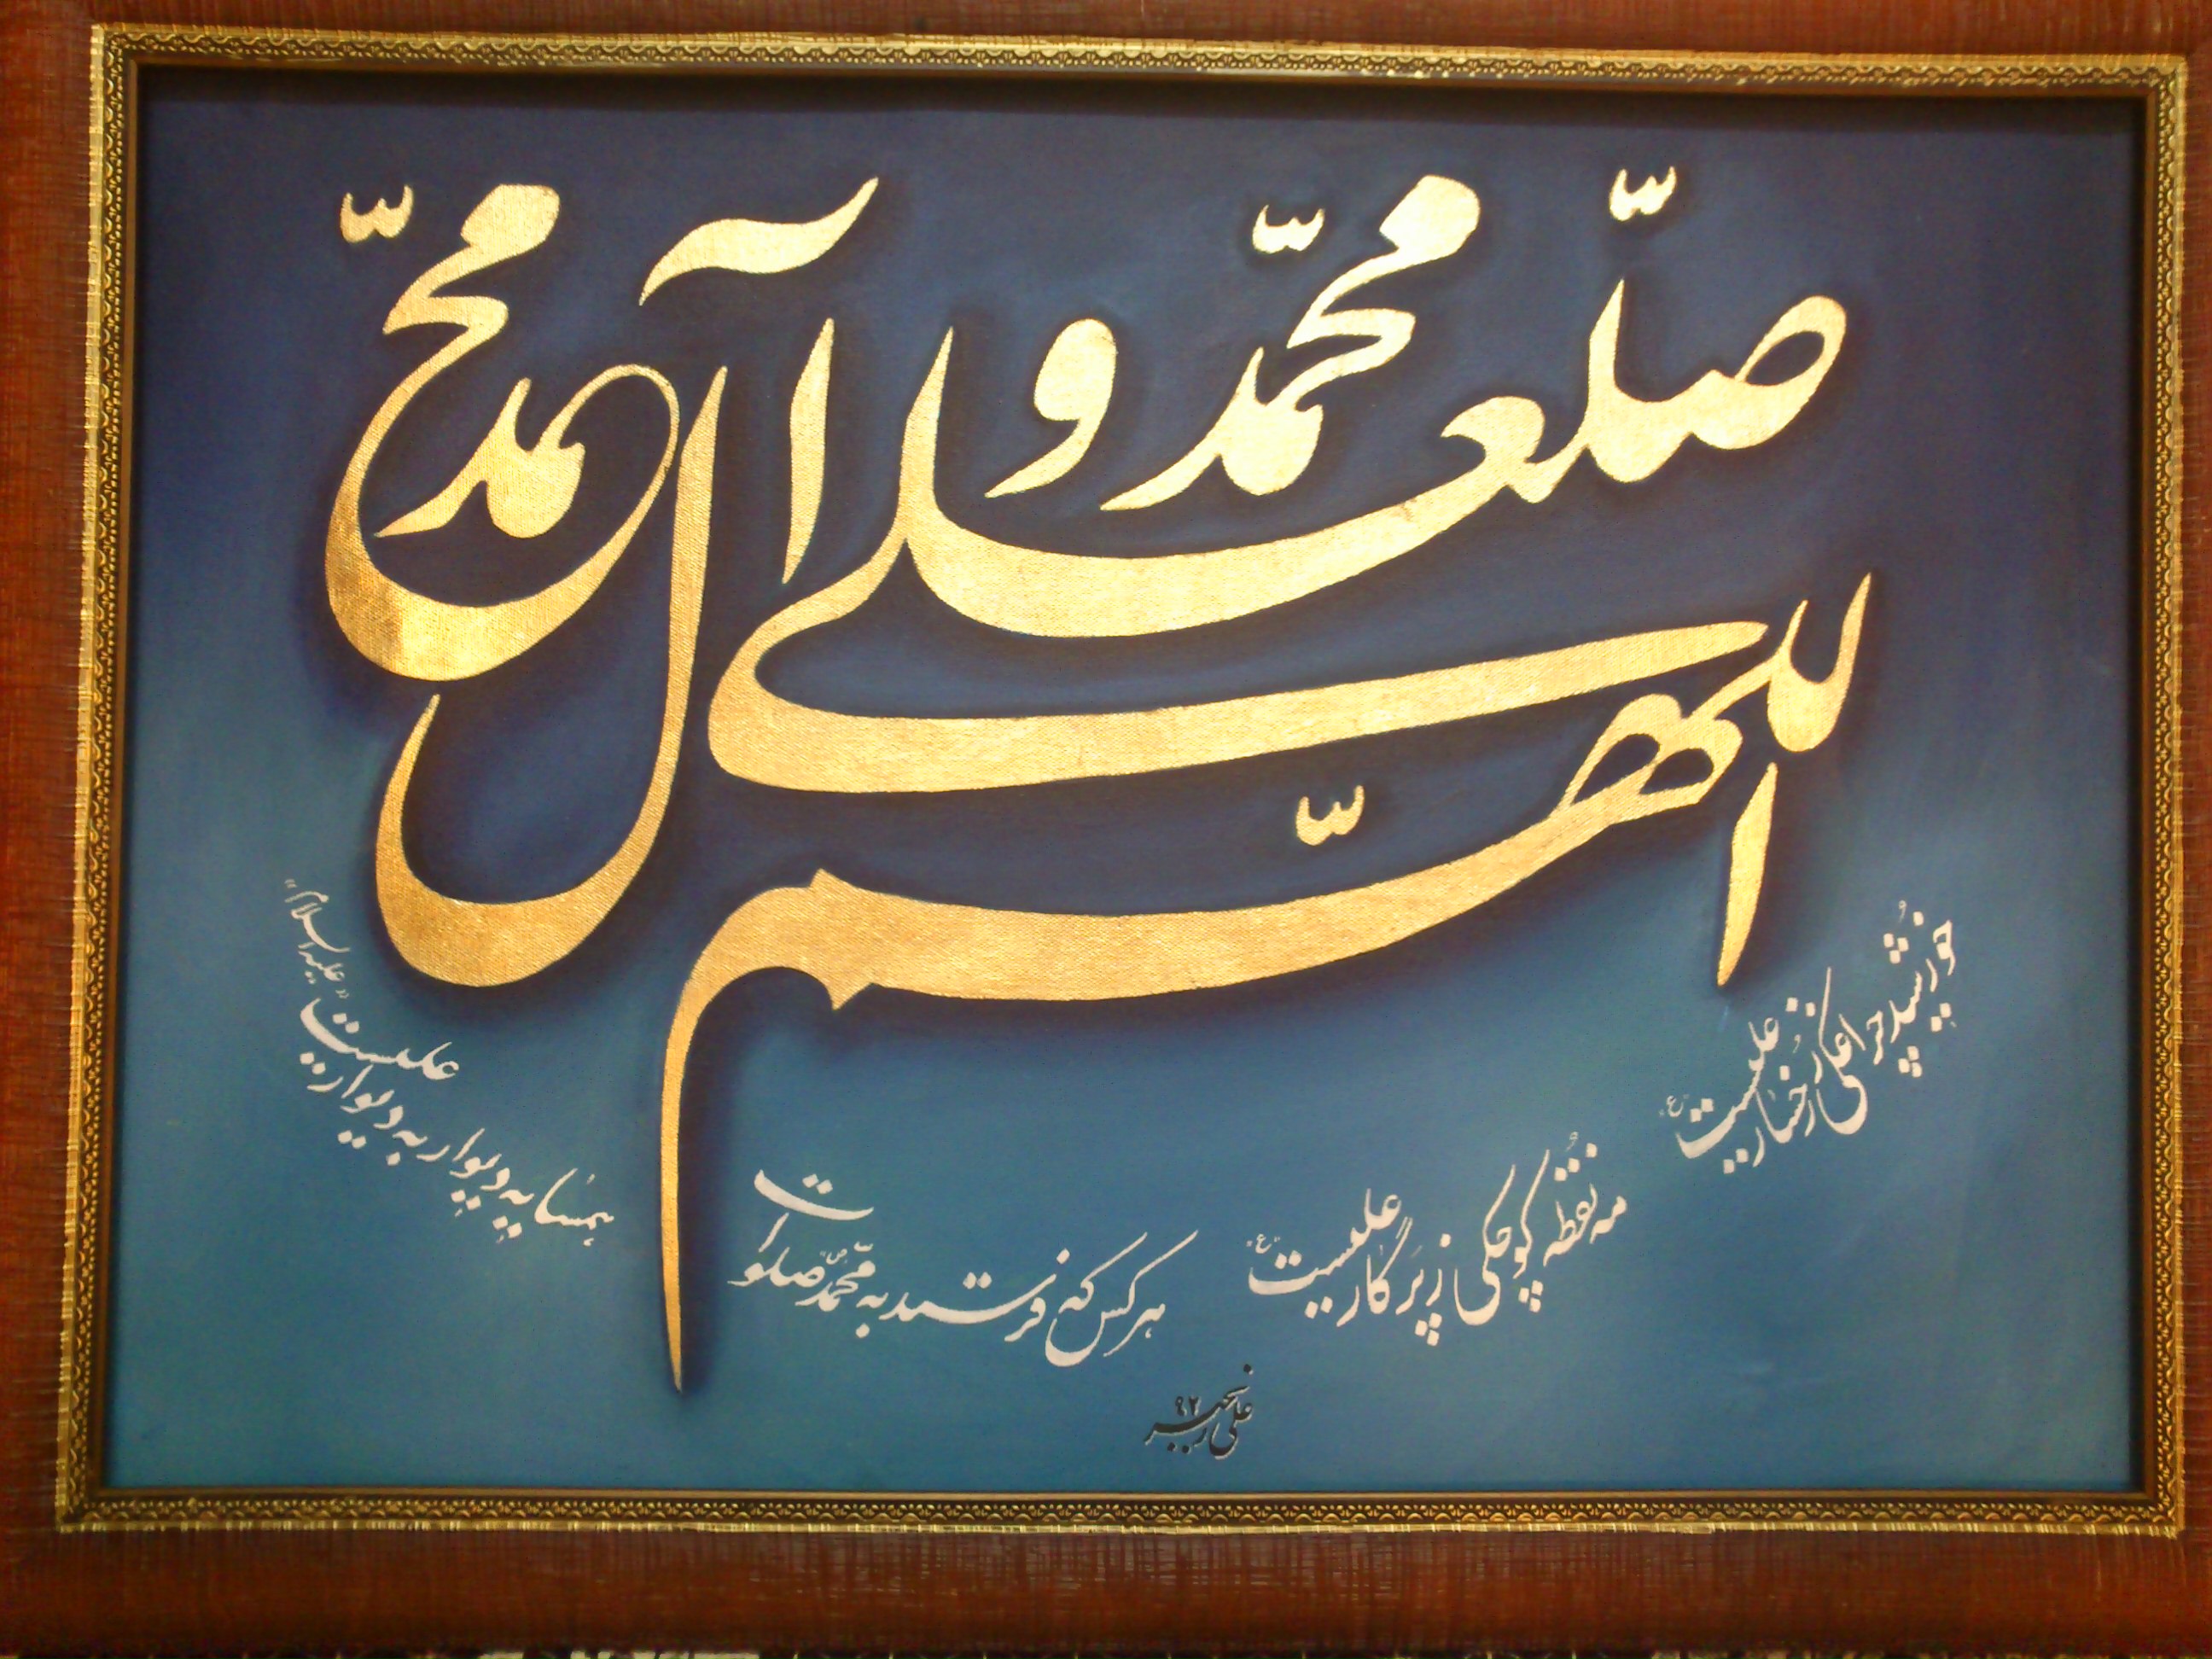 اللّهمّ صلّ علی محمّد و آل محمّد
خورشید چراغکی ز رخسار علیست "ع"
مه نقطه کوچکی ز پرگار علیست "ع"
هر کس که فرستد به محمّد صلوات
همسایه دیوار به دیوار علیست "علیه السلام"
علی رنجبر ۹۲